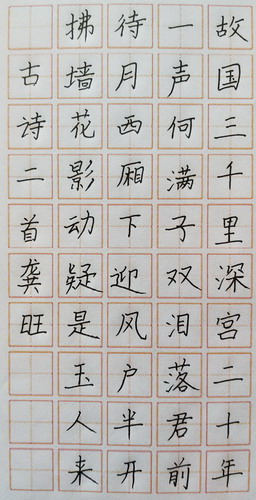 故国三千里深宫二十年
一声何满子双泪落君前
待月西厢下迎风户半开
拂墙花影动疑是玉人来
古诗二首龚旺